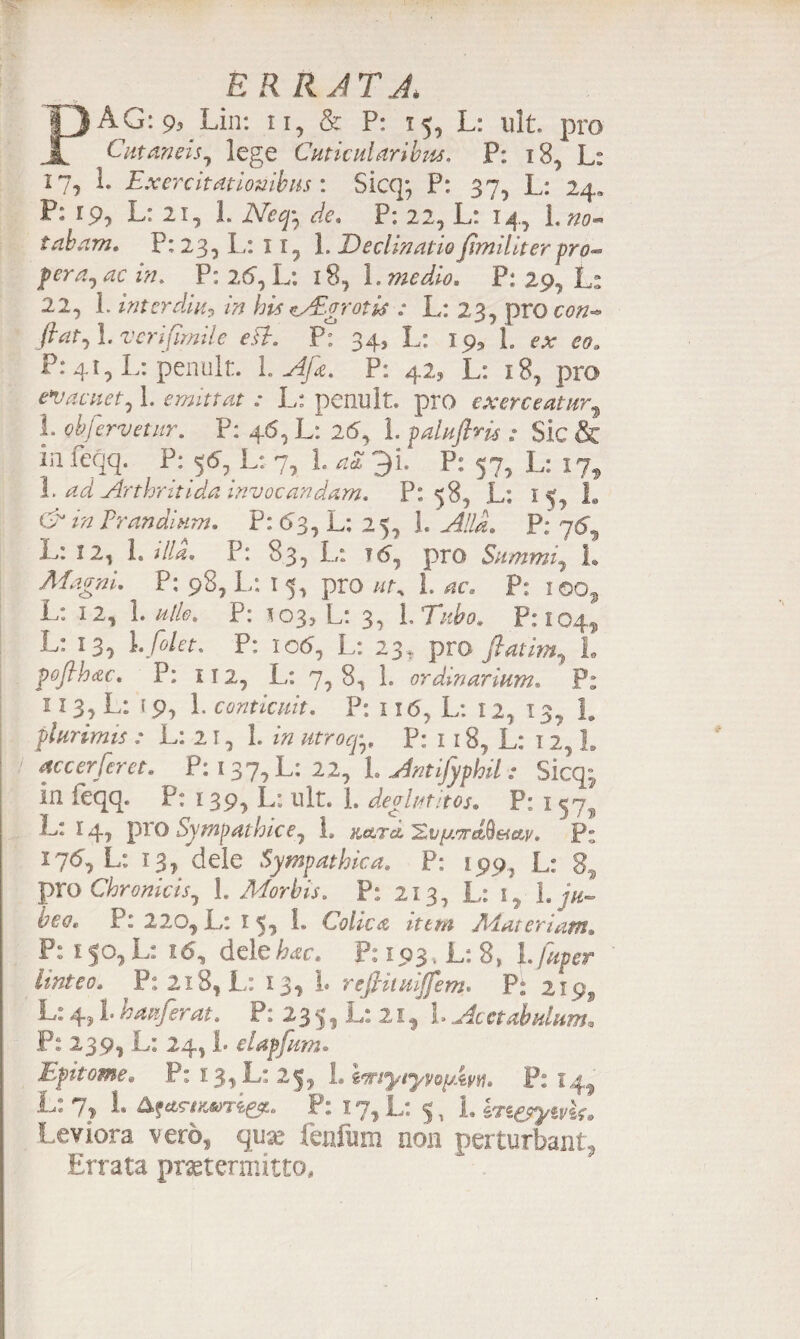 ERRATA.
PAG: 9, Lin: 11, & P: 15, L: ult. pro
Cutaneis, lege Cuticularibus. P: 18, L:
17, l. Exercitationibus: Sicq; P: 37, L: 24.
P: 19, L: 21, l. Neq; de. P: 22, L: 14, l. no-
tabam. P: 23, L: 11, l. Declinatio ſimiliter pro-
ſpera, ac in. P: 26, L: 18, l. medio. P: 29, L:
22, l. interdiu, in his Ægrotis: L: 23, pro con-
ſtat, l. veriſimile eſt. P: 34, L: 19, l. ex eo.
P: 41, L: penult. l. Aſæ. P: 42, L: 18, pro
evacuet, l. emittat: L: penult. pro exerceatur,
l. obſervetur. P: 46, L: 26, l. paluſtris: Sic &
in ſeqq. P: 56, L: 7, l. aã ℈i. P: 57, L: 17,
l. ad Arthritida invocandam. P: 58, L: 15, l.
& in Prandium. P: 63, L: 25, l. Allâ. P: 76,
L: 12, l. illâ. P: 83, L: 16, pro Summi, l.
Magni. P: 98, L: 15, pro ut, l. ac. P: 100,
L: 12, l. ullo. P: 103, L: 3, l. Tubo. P: 104,
L: 13, l. ſolet. P: 106, L: 23, pro ſtatim, l.
poſthæc. P: 112, L: 7, 8, l. ordinarium. P:
113, L: 19, l. conticuit. P: 116, L: 12, 13, l.
plurimis: L: 21, l. in utroq;. P: 118, L: 12, l.
accerſeret. P: 137, L: 22, l. Antiſyphil: Sicq;
in ſeqq. P: 139, L: ult. l. deglutitos. P: 157,
L: 14, pro Sympathice, l. κατὰ Συμπάθειαν. P:
176, L: 13, dele Sympathica. P: 199, L: 8,
pro Chronicis, l. Morbis. P: 213, L: 1, l. ju-
beo. P: 220, L: 15, l. Colica item Materiam.
P: 150, L: 16, dele hæc. P: 193, L: 8, l. ſuper
linteo. P: 218, L: 13, l. reſtituiſſem. P: 219,
L: 4, l. hauſerat. P: 235, L: 21, l. Acetabulum.
P: 239, L: 24, l. elapſum.
Epitome. P: 13, L: 25, l. ἐπιγιγνομένη. P: 14,
L: 7, l. Δραστικωτέρα. P: 17, L: 5, l. ἑτερογενὲς.
Leviora verò, quæ ſenſum non perturbant,
Errata prætermitto.